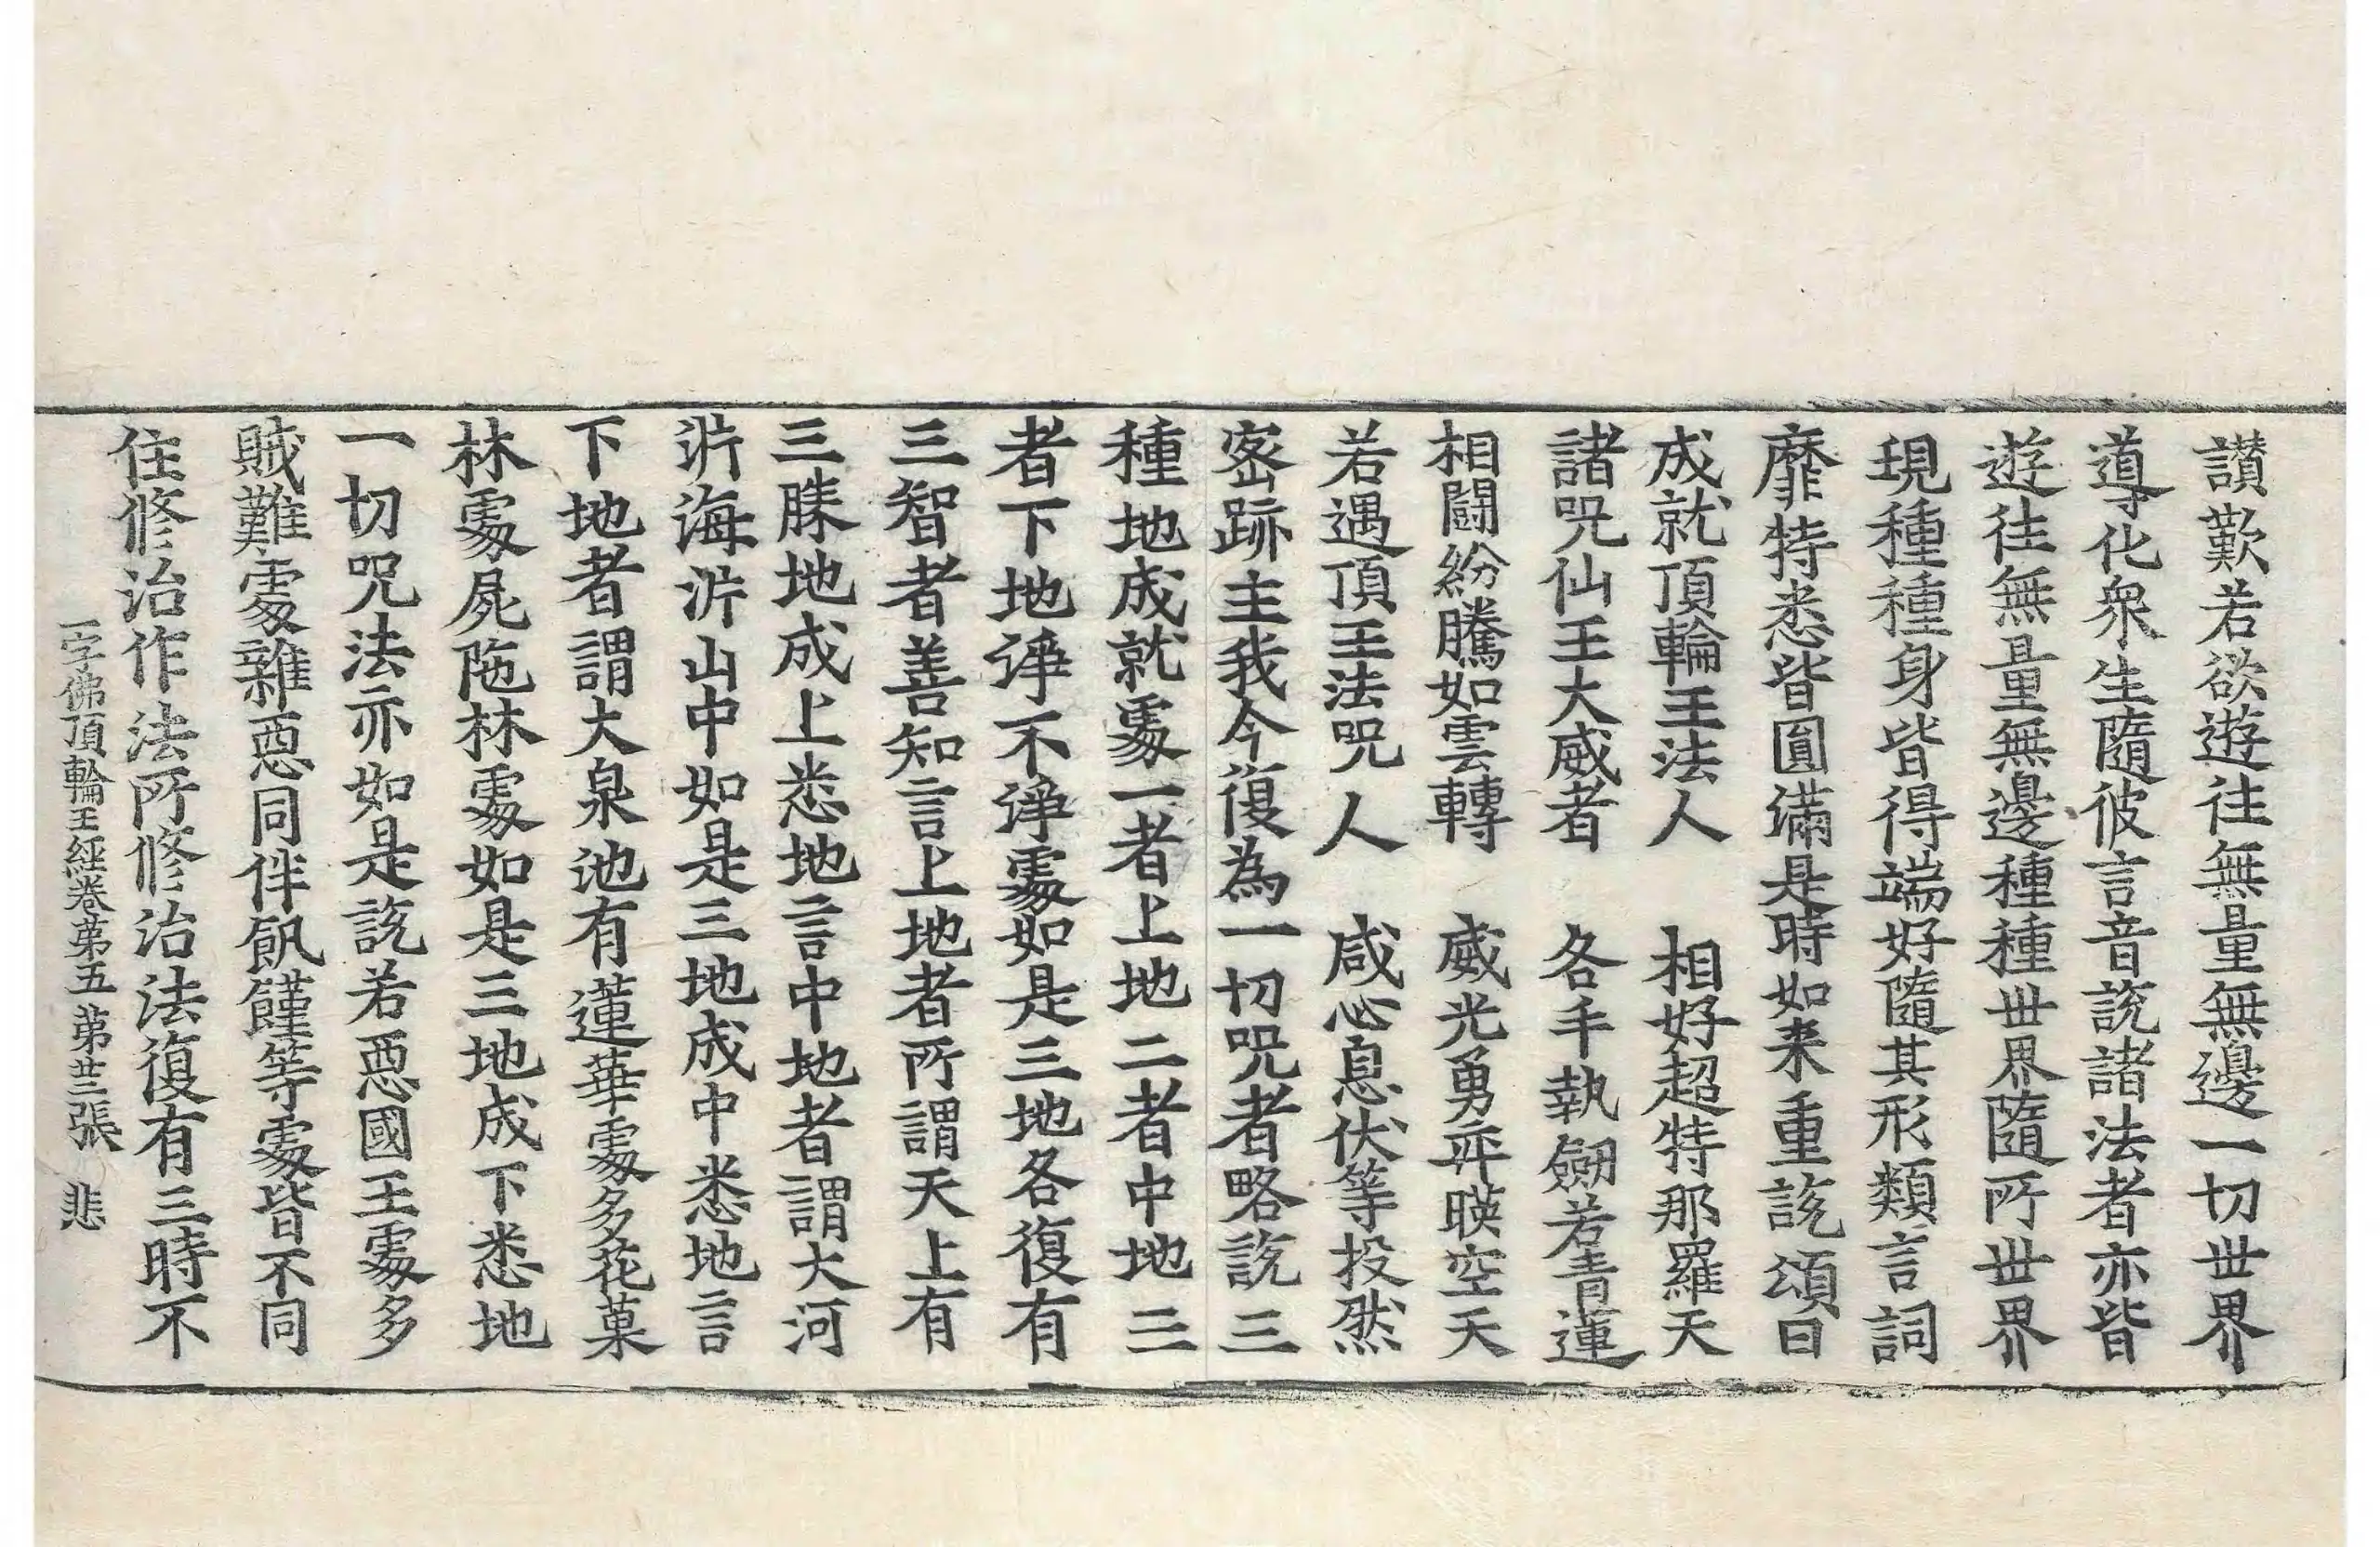 讃歎若欲遊往無量無邊一切丗界
導化衆生隨彼言音說諸法者亦皆
遊往無量無邊種種丗界隨所丗界
現種種身皆得端好隨其形類言詞
靡特悉皆圓滿是時如来重說頌曰
成就頂輪王法人　相好超特那羅天
諸咒仙王大威者　各手執劒若青蓮
相鬪紛騰如雲轉　威光勇㢧暎空天
若遇頂王法咒人　咸心息伏等投㷼
密跡主我今復為一切咒者略說三
種地成就䖏一者上地二者中地三
者下地諍不諍䖏如是三地各復有
三智者善知言上地者所謂天上有
三勝地成上悉地言中地者謂大河
泝海泝山中如是三地成中悉地言
下地者謂大泉池有蓮華䖏多花菓
林䖏屍陁林䖏如是三地成下悉地
一切咒法亦如是說若惡國王䖏多
賊難䖏雜惡同伴飢饉等䖏皆不同
住修治作法所修治法復有三時不
一字佛頂輪王經卷苐五　苐丗三張　悲